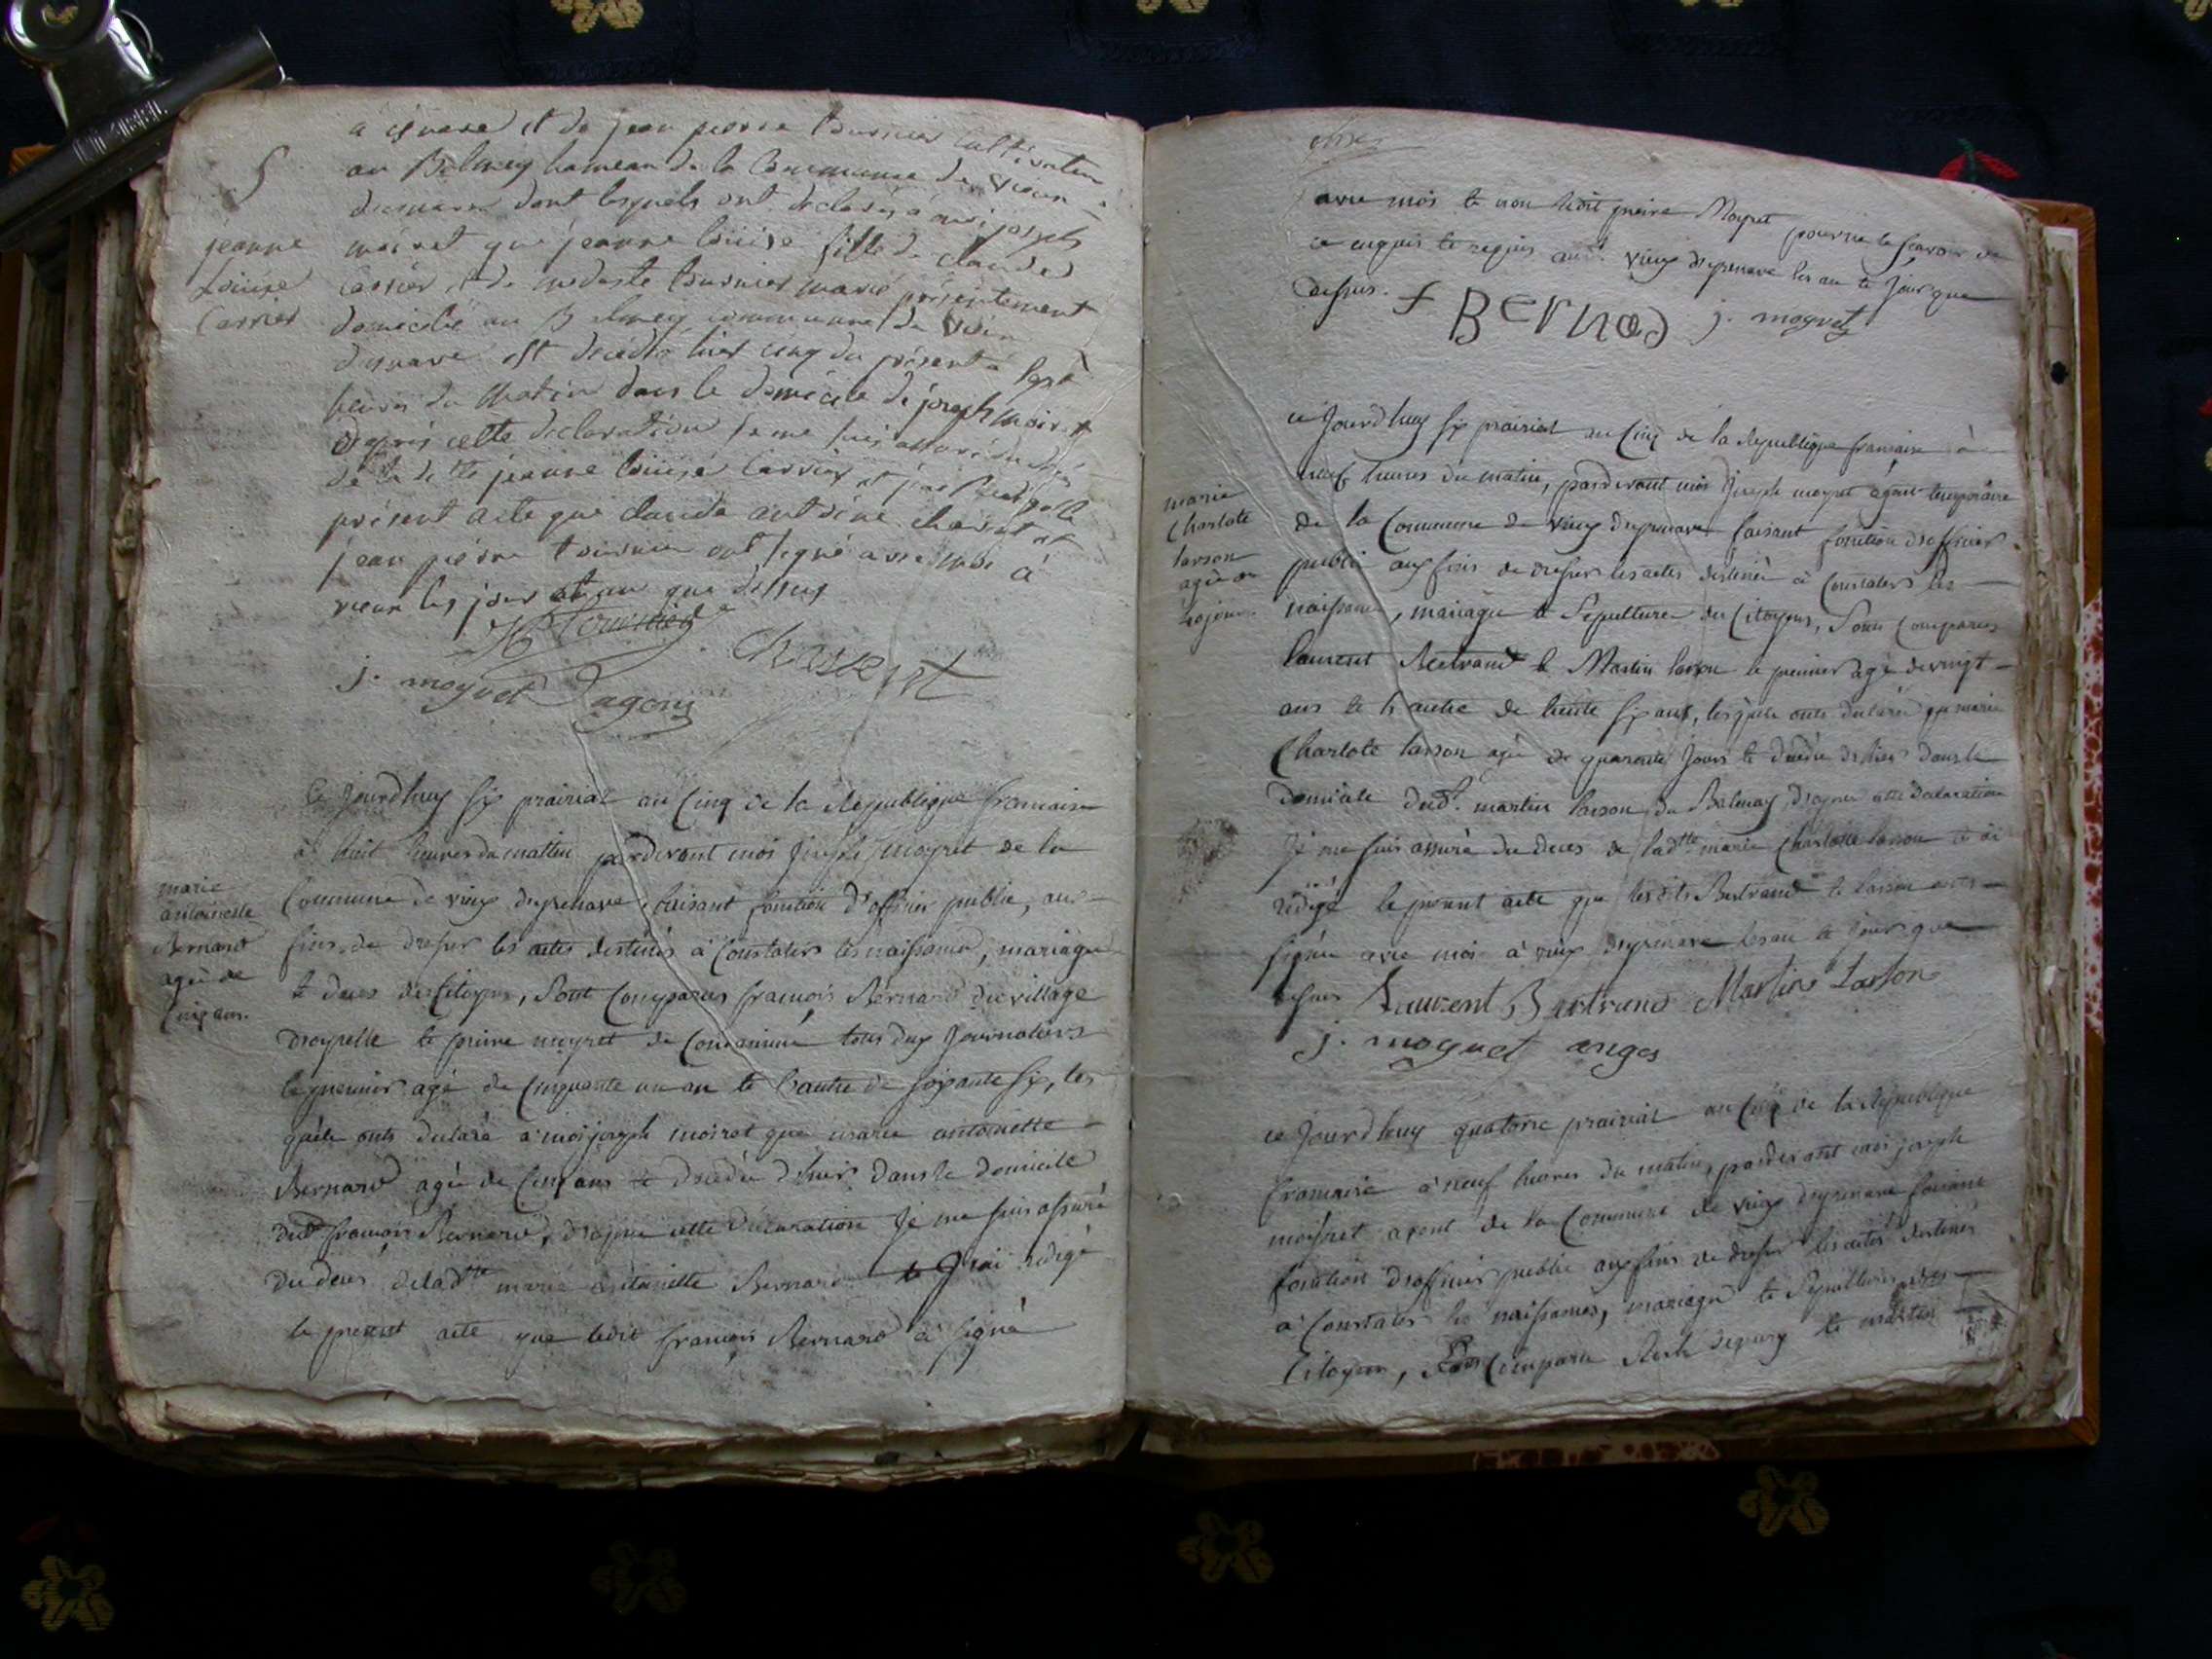 a isnave et de jean pierre tournier cultivateur
au Balmey hameau de la Commune de vieux
disnave dont lesquels ont déclarés à moi joseph
moiret que jeanne louise fille de claude
carrier et de modeste tournier marié présentement
domicilié au Balmey commune de vieu
disnave est décédé hier cinq du présent à sept
heures du matin dans le domicile de joseph moiret
d'après cette déclaration je me suis assuré du décés
de la ditte jeanne louise Carrier et j'ai rédigé le
présent acte que claude antoine chasset et
jean pierre tournier ont signé avec moi à
vieux les jour et an que dessus
5
jeanne
Louise
Carrier
JP Tournier
Chasset
j. moyret agent
Ce Jourdhuy six prairial an Cinq de la République francaise
à huit heures du mattin pardevant moi Joseph moyret de la
Commune de vieux disenave faisant fonction d'officier public, aux
fins de dresser les actes destinés à Constaters les naissances, mariages
et deces des Citoyens, Sont Comparus francois Bernard du village
et pierre moyret de tous deux Journaliers
le premier agé de Cinquante un an et l'autre de soixante six, les
quels onts declaré a moi joseph moiret que marie antoinette
Bernard agée de Cinq ans et décédée d'hier dans le domicile
dud. francois Bernard, d'apres cette declaration Je me suis assuré
du deces de lad.tte marie antoinette Bernard et J'ai redigé
le present acte que ledit francois Bernard à signé
marie
antoinette
Bernard
agée de
Cinq ans.
avec moi et non ledit pierre Moyret pour ne le scavoir de
ce enquis et requis aud. vieux disenave les an et Jour que
dessus. f Bernad j. moyret
ce Jourdhuy six prairial an Cinq de la République francaise à
neuf heures du matin, pardevant moi Joseph moyret agent temporaire
de la Commune de vieux disenave faisant fonction d'officier
public aux fins de dresser les actes destinés à Constaters les
naissances, mariages et Sepultures des Citoyens, Sont Comparus
laurent Bertrand et Martin lason le premier agé de vingt
ans et l'autre de trente six ans, lesquels onts declaré que marie
Charlote lasson agée de quarante Jours et decedée d'hier dans le
domicile dud. martin lasson du Balmay, d'apres cette declaration
Je me suis assuré du deces de lad.tte marie Charlotte lasson et ai
redigé le present acte que lesdits Bertrand et lasson onts
signés avec moi à vieux disenave les an et Jour que
dessus Laurent Bertrand Martin Lasson
j. moyuet anges
marie
Charlote
lasson
agée de
40 jours
ce Jourdhuy quatorze prairial an Cinq de la République
francaise à neuf heures du matin, pardevant moi joseph
moyret agent de la Commune de vieux disenave faisant
fonction d'officier public aux fins de dresser les actes destinés
à Constater les naissances, mariages et Sepultures des
Citoyens, Sont Comparu et martin